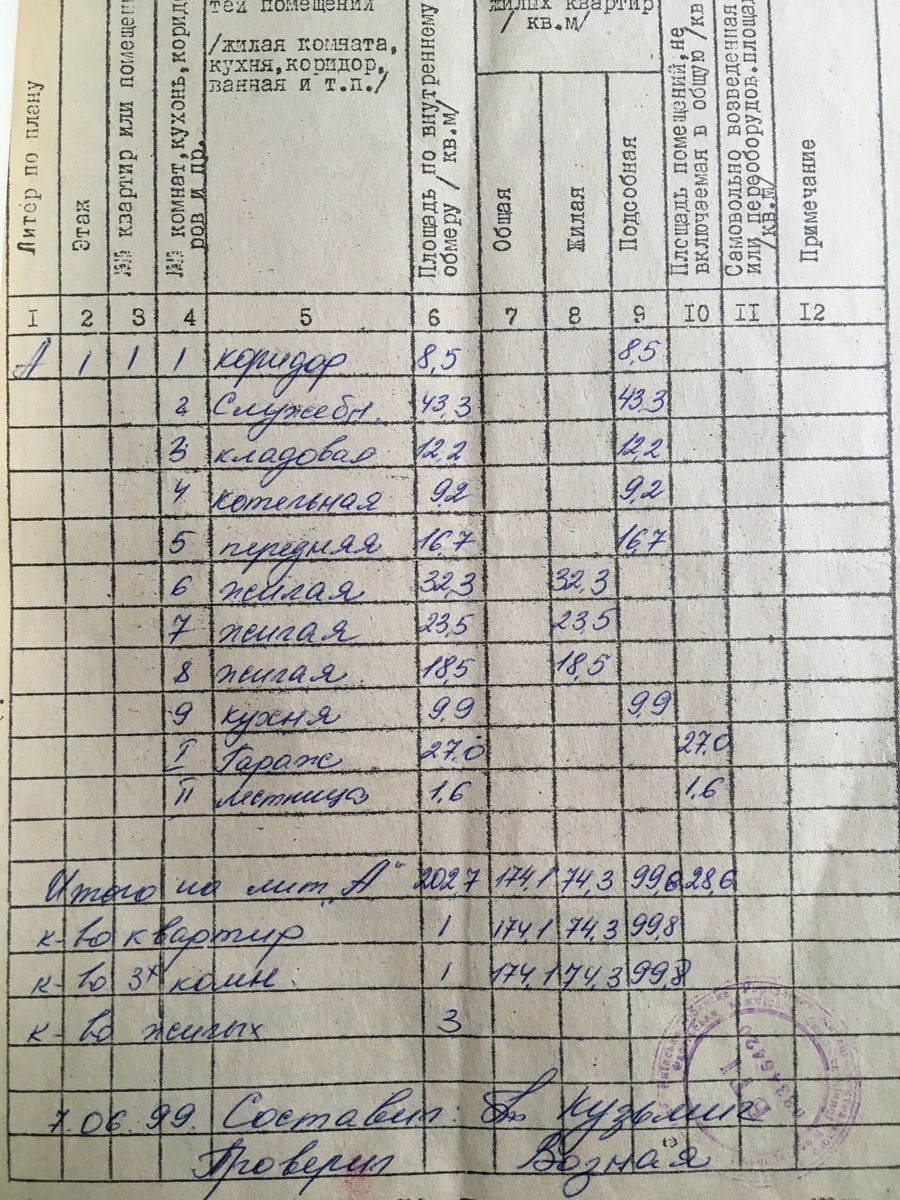 тей помещений
/жилая комната,
кухня, коридор,
ванная и т.п./
жилых квартир
/ кв.м/
Литер по плану
Этаж
№№ квартир или помещени
№№ комнат, кухонь, корид
ров и пр.
Площадь по внутреннему
обмеру / кв.м/
Общая
Жилая
Подсобная
Площадь помещений, не
включаемая в общую /кв
Самовольно возведенная
или переоборудов. площад
/кв.м/
Примечание
I 2 3 4 5 6 7 8 9 I0 II I2
А 1 1 1 коридор 8,5 8,5
2 Служебн. 43,3 43,3
3 кладовая 12,2 12,2
4 котельная 9,2 9,2
5 передняя 16,7 16,7
6 жилая 32,3 32,3
7 жилая 23,5 23,5
8 жилая 18,5 18,5
9 кухня 9,9 9,9
I Гараж 27,0 27,0
II лестница 1,6 1,6
Итого по лит „А" 202,7 174,1 74,3 99,8 28,6
к-во квартир 1 174,1 74,3 99,8
к-во 3х комн. 1 174,1 74,3 99,8
к-во жилых 3
7.06.99. Составил: Кузьмич
Проверил Возная
БТІ